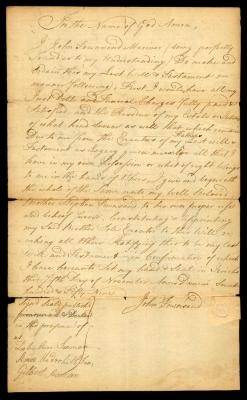 In the Name of God Amen,
I John Townsend Mariner, being perfectly
Sound as to my Understanding, Do make and
Ordain this my Last Will & Testament in
manner following, First I would have all my
Just Debts and Funeral Charges fully paid &
Satisfied and the Residue of my Estate or
of what kind Soever as well that which remains
Due to me from the Executors of my Father's will &
Testament as Legacy as well that I
have in my own Possession or what of right belongs
to me in the hands of Others I give and bequeath
the whole of the Same unto my well beloved
Brother Stephen Townsend to his own proper use
and behoof forever, Constituting & appointing
my Said Brother Sole Executor to this Will
revoking all Others Ratifying this to be my Last
Will and Testament in Confirmation of which
I have hereunto Set my hand & Seal in Jericho
this fifth Day of November Anno Domini Seventeen
hundred & Fifty Nine
John Townsend
Sign'd Seal'd publish'd
pronounced & Declared
in the presence of
us
Zebulon Seaman
Amos Underhill
Gilbert